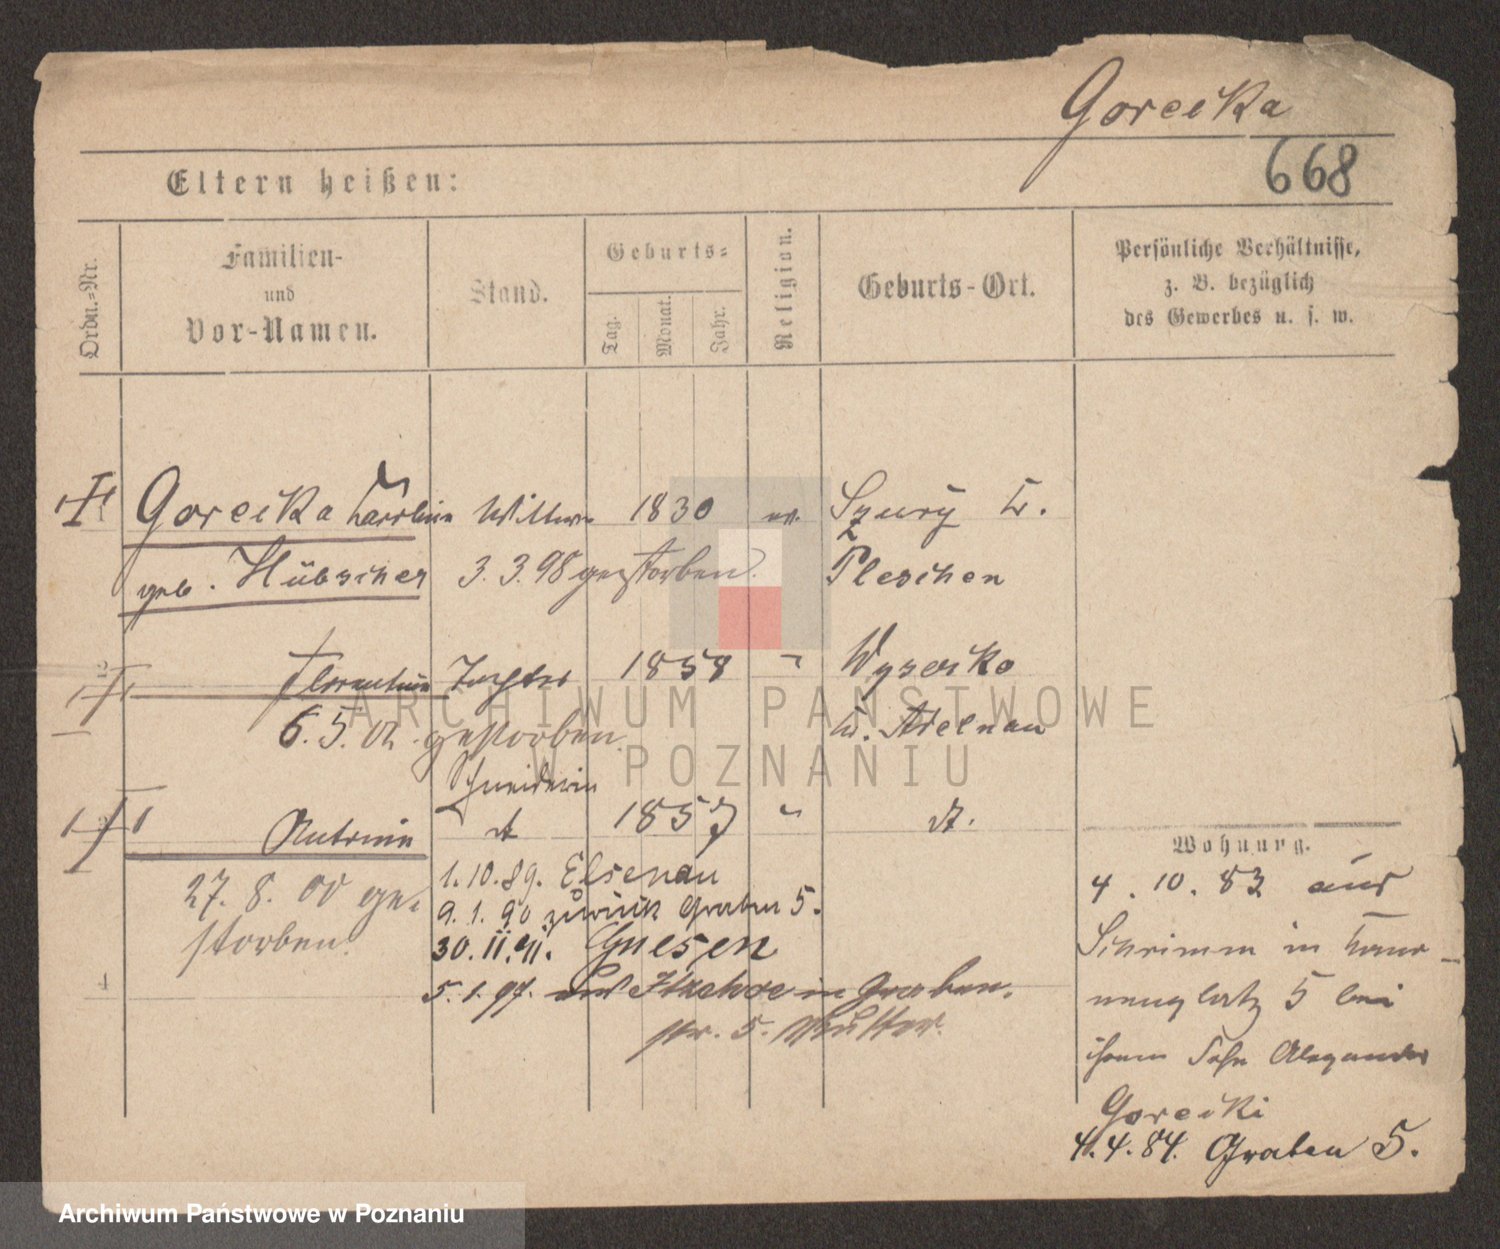 Gorecka
668
Eltern heißen:
Ordn.-Nr.
Familien-
und
Vor-Namen.
Stand.
Geburts-
Tag.
Monat.
Jahr.
Religion.
Geburts-Ort.
Persönliche Verhältnisse,
z. B. bezüglich
des Gewerbes u. s. w.
Gorecka Karoline Wittwe 1830 Szury K.
geb. Hübscher 3. 3. 98 gestorben. Pleschen
Florentine Tochter 1858 " Wysocko
6. 5. 02. gestorben K. Adelnau
Schneiderin
dt 1857 " dt.
27. 8. 00 ge-
storben.
1. 10. 89. Elsenau
9. 1. 90 zurück Graben 5.
30. II. 91. Gnesen
5. 1. 97. aus Itzehoe in Graben-
str. 5. Mutter.
Wohnung.
4. 10. 83 aus
Schrimm in
5 bei
ihrem Sohn Alexander
Gorecki
4. 4. 84. Graben 5.
ARCHIWUM PAŃSTWOWE
W POZNANIU
Archiwum Państwowe w Poznaniu